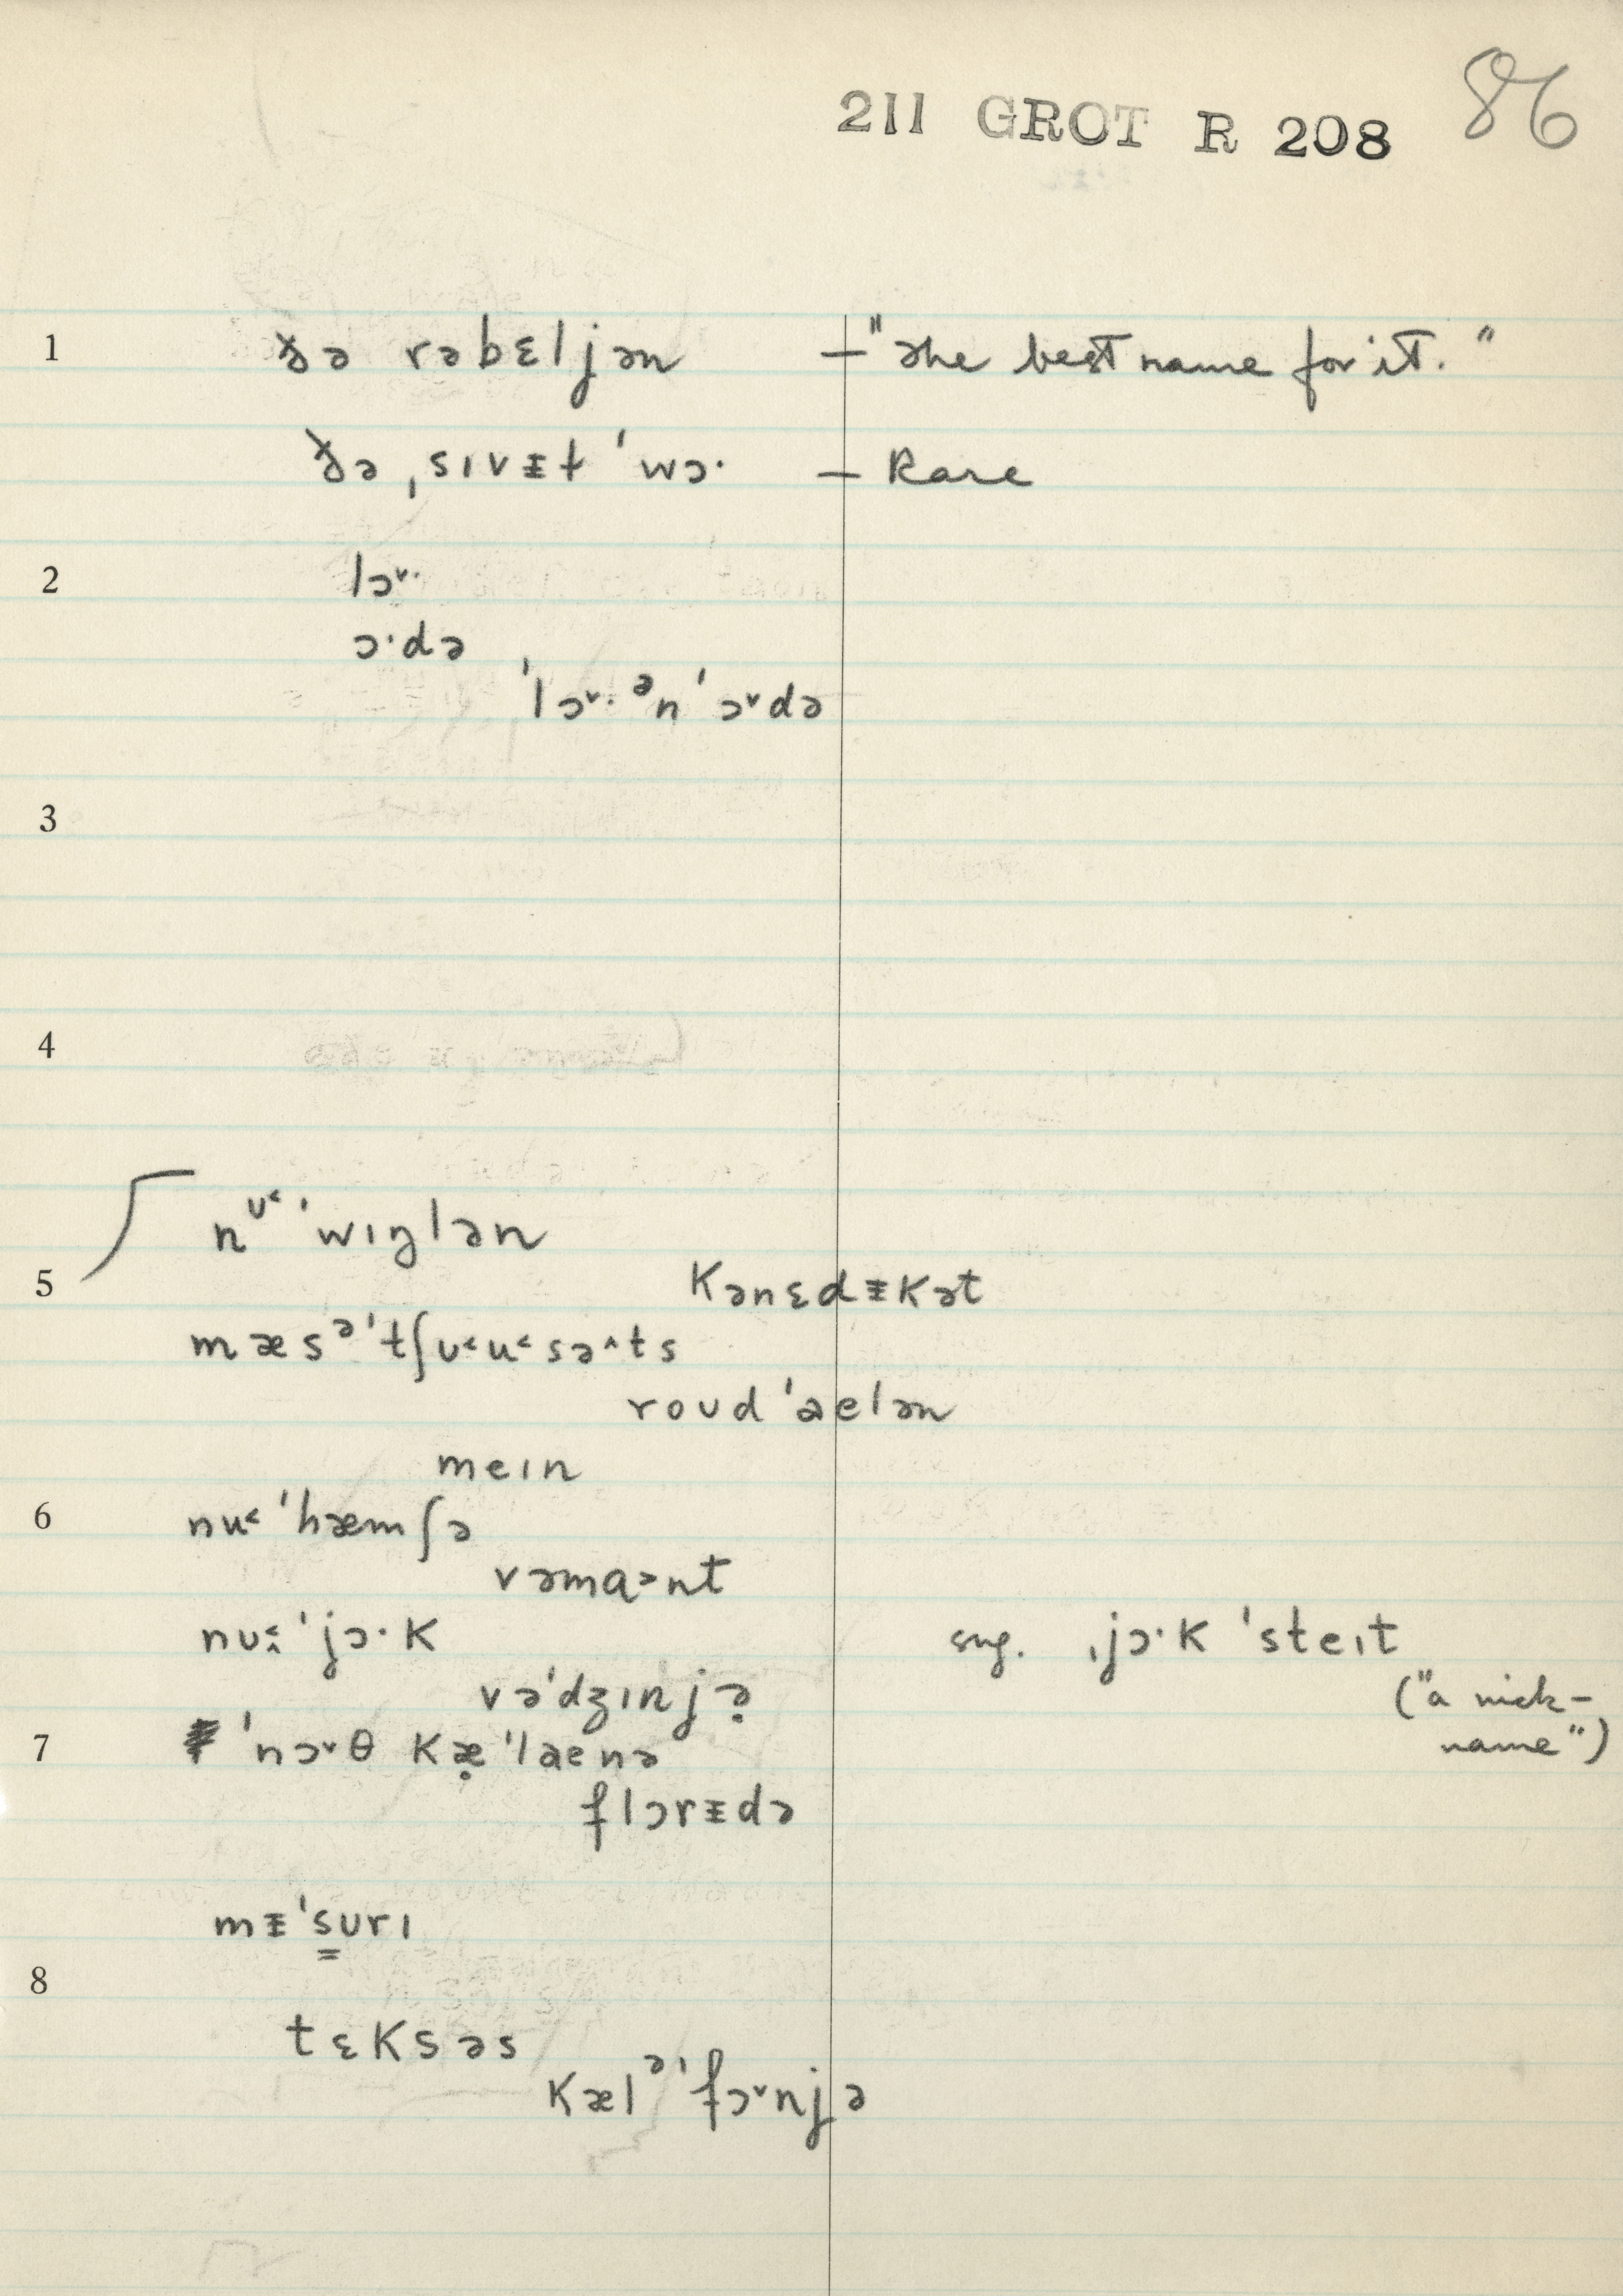 211 GROT R 208 86
1 ðə rəbɛljən — "the best name for it."
ðə ˌsɪvᵻt ˈwɔ· — Rare
2 lɔ˅·
ɔ·də
ˈlɔ˅· ᵊnˈ ɔ˅də
3
4
nᶷ˂ ˈwɪŋlən
5 kənɛdᵻkət
mæsᵊˈtʃʊ˂u˂sə˄ts
roʊdˈaelən
meɪn
6 nu˂ ˈhæmʃə
vəma˃nt
nʊ˂˄ ˈjɔ·k sug. ˌjɔ·k ˈsteɪt
vəˈdʒɪnjə̣ ("a nick-
7 ˈnɔ˅θ kæ̣ˈlaenə name")
flɔrᵻdə
mᵻˈs̳ʊrɪ
8
tɛksəs
kælᵊˈfɔ˅njə